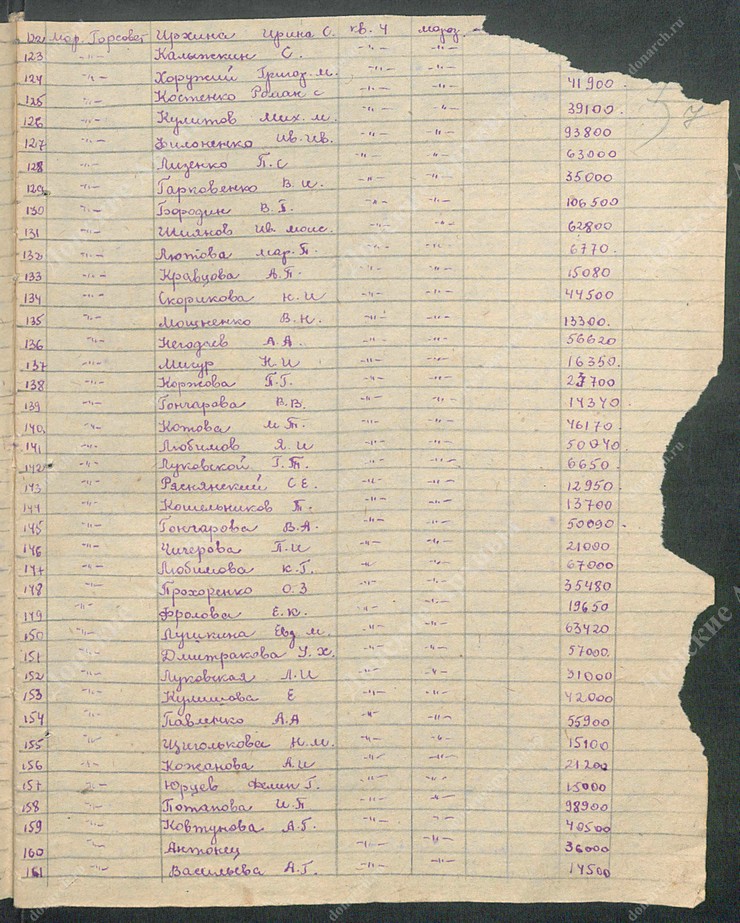 122 Мар. Горсовет Иржина Ирина С. кв. 4 мороз.
123 -"- Калыжкин С. -"- -"-
124 -"- Хоружий Григор. М. -"- -"- 41900
125 -"- Костенко Роман С -"- -"- 39100.
126 -"- Кулитов Мих. М. -"- -"- 93800
127 -"- Филоненко Ив. Ив. -"- -"- 63000
128 -"- Лизенко П. С -"- -"- 35000
129 -"- Гарковенко В. И. -"- -"- 106500
130 -"- Бородин В. Г. -"- -"- 62800
131 -"- Шиянов Ив. Моис. -"- -"- 6770.
132 -"- Лютова Мар. П. -"- -"- 15080
133 -"- Кравцова А. П. -"- -"- 44500
134 -"- Скорикова Н. И -"- -"- 13300.
135 -"- Мошненко В. Н. -"- -"- 56620
136 -"- Негодаев А. А. -"- -"- 16350.
137 -"- Мигур Н. И -"- -"-
138 -"- Коржова П. Г. -"- -"- 14340
139 -"- Гончарова В. В. -"- -"- 46170
140. -"- Котова М. Т. -"- -"- 50040
141 -"- Любимов Я. И -"- -"- 6650
142 -"- Луковской Г. Т. -"- -"- 12950
143 -"- Ряснянский С Е. -"- -"- 13700
144 -"- Кошельников Т. -"- -"- 50090
145 -"- Гончарова В. А. -"- -"- 21000
146 -"- Чичерова П. И -"- -"- 67000
147 -"- Любимова К. Г. -"- -"- 35480
148 -"- Прохоренко О. З -"- -"- 19650
149 -"- Фролова Е. К. -"- -"- 63420
150 -"- Пушкина Евд. М. -"- -"- 57000.
151 -"- Дмитракова У. Х. -"- -"- 31000
152 -"- Луковская Л. И -"- -"- 42000
153 -"- Кулишова Е -"- -"- 55900
154 -"- Павленко А. А -"- -"- 15100
155 -"- Щиголькова Н. М. -"- -"- 21200
156 -"- Кожанова А. И -"- -"- 15000
157 -"- Юрцев Г. -"- -"- 98900
158 -"- Потапова И. П -"- -"- 40500
159 -"- Ковтунова А. Г. -"- -"- 36000
160 -"- Антонец -"- -"- 14500
161 -"- Васильева А. Г. -"- -"-